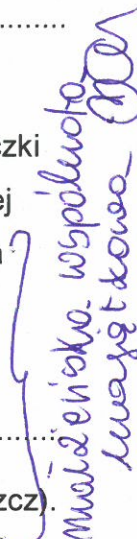 ....................
czki
ej
a
....................
zcz).
małżeńska wspólnota
majątkowa